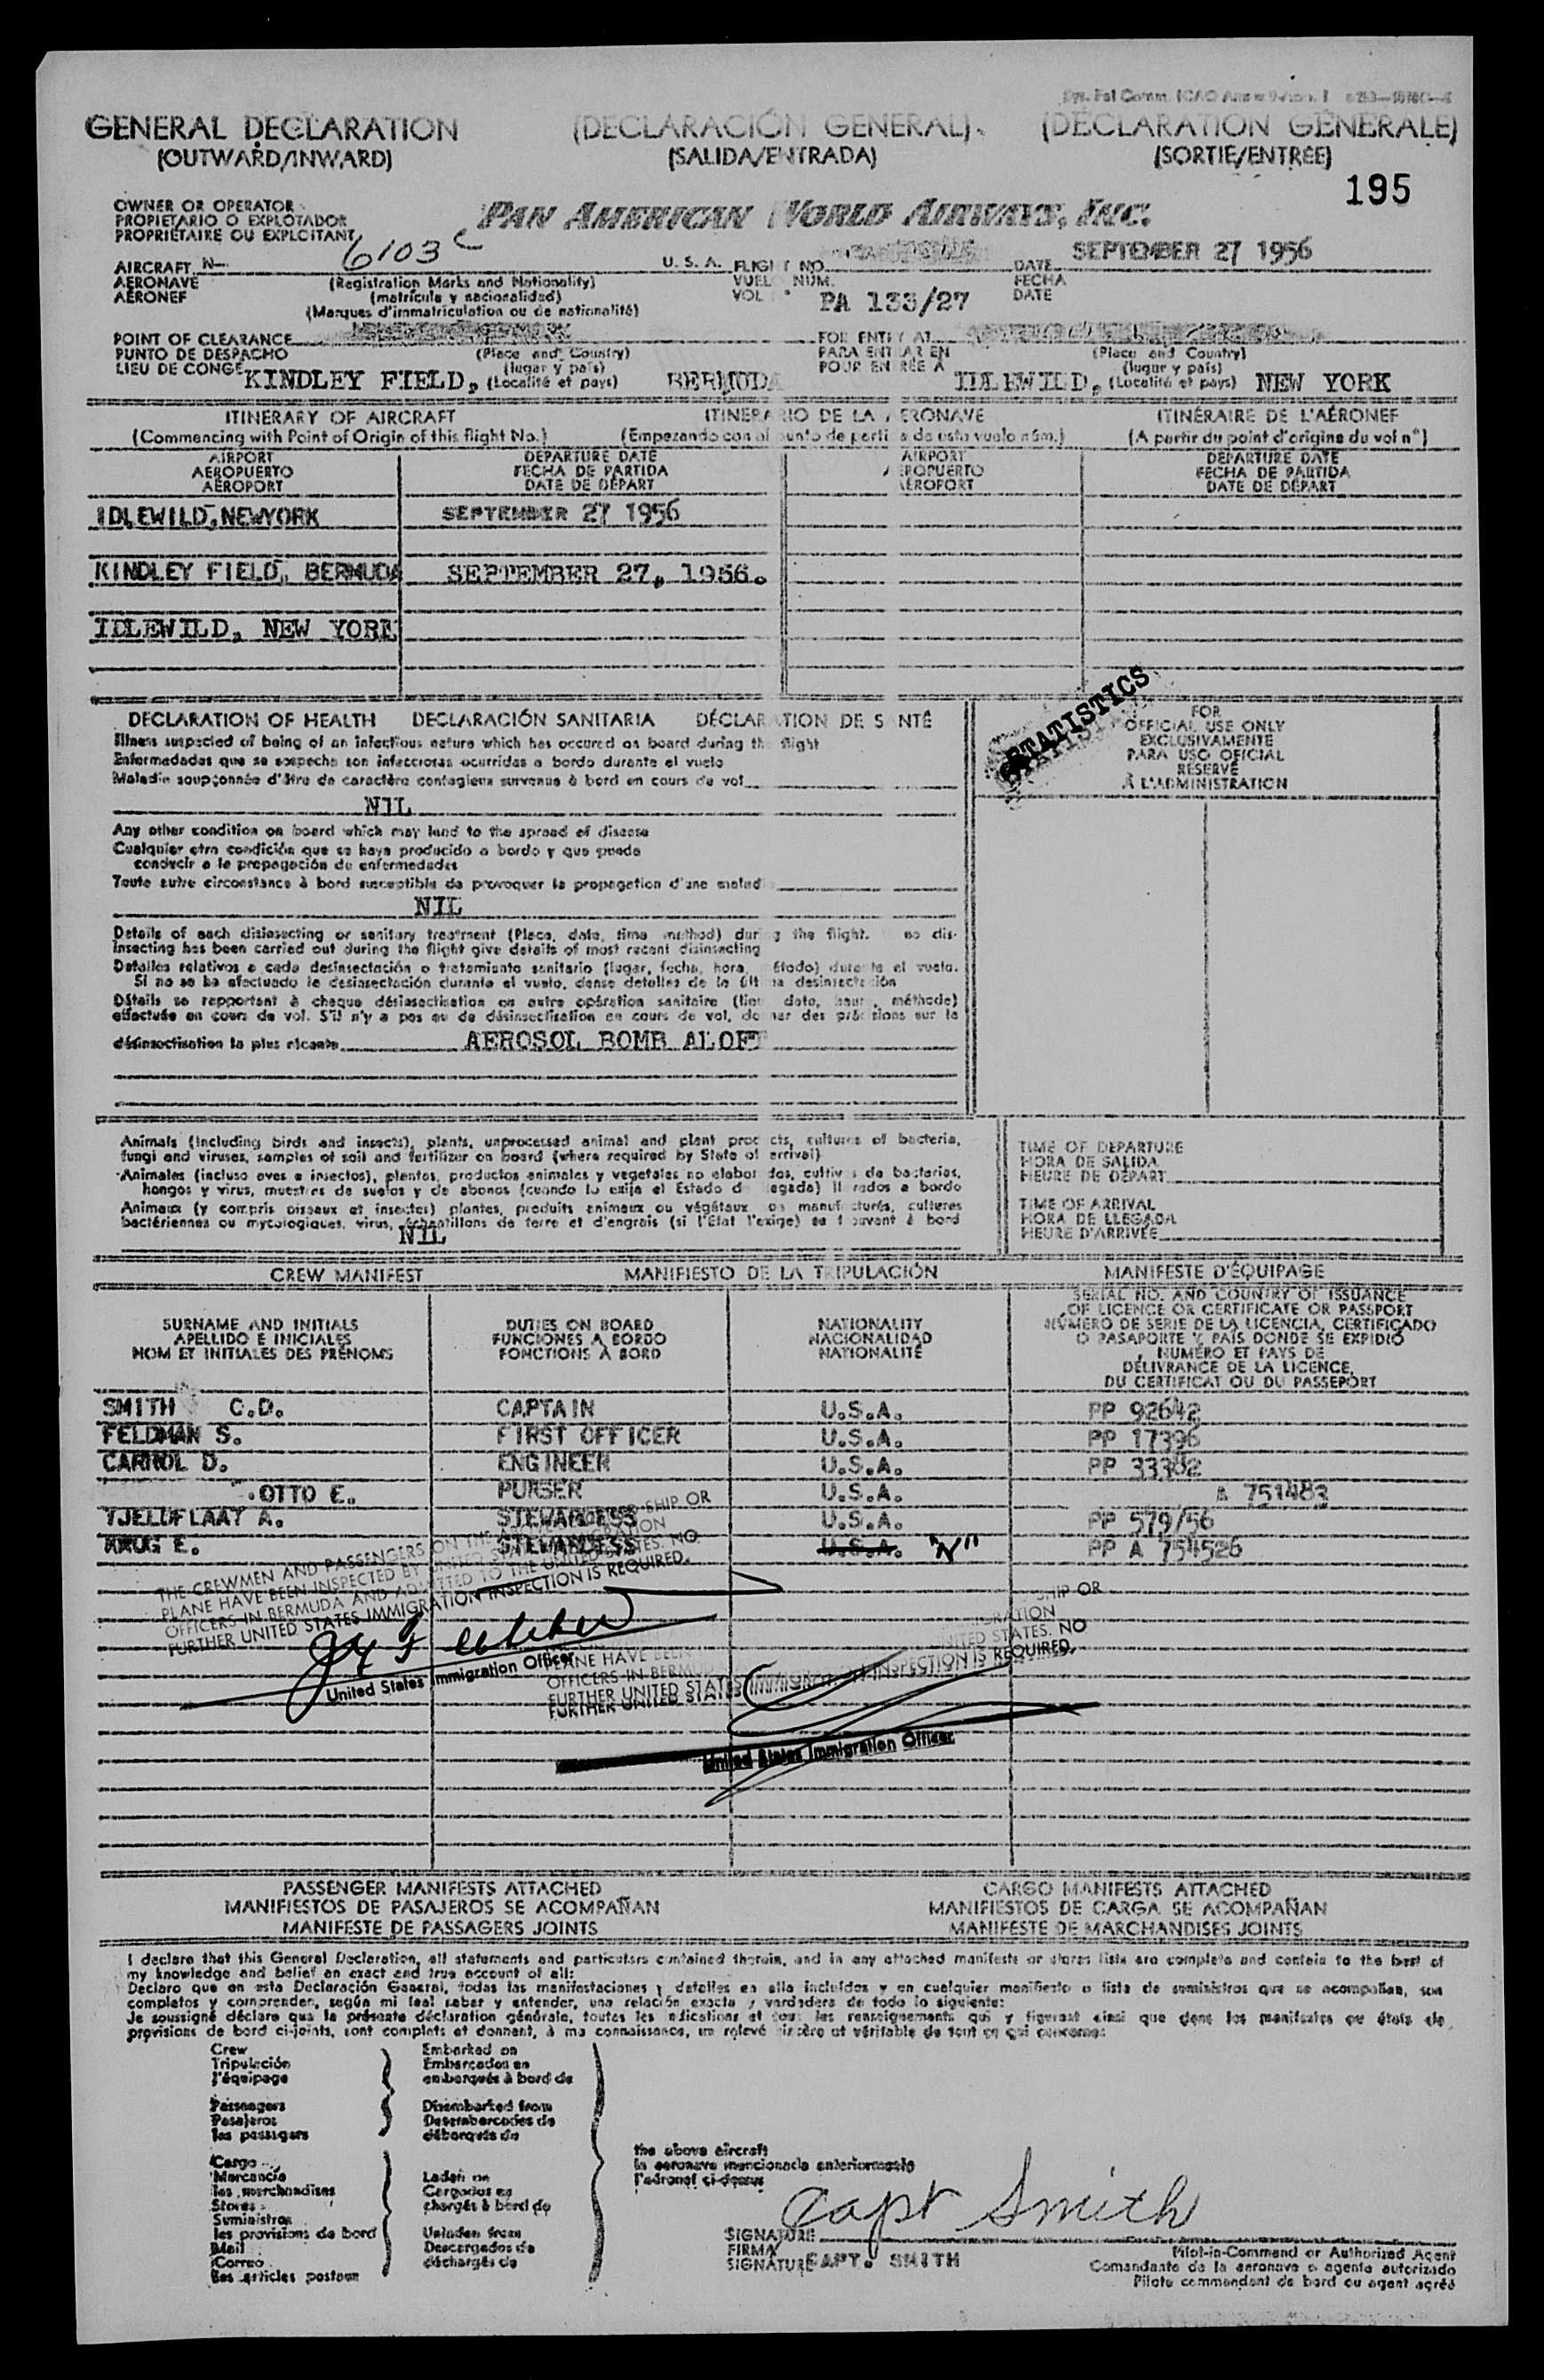 GENERAL DECLARATION (DECLARACIÓN GENERAL) (DÉCLARATION GÉNÉRALE)
(OUTWARD/INWARD) (SALIDA/ENTRADA) (SORTIE/ENTRÉE)
195
OWNER OR OPERATOR
PROPIETARIO O EXPLOTADOR
PROPRIÉTAIRE OU EXPLOITANT
PAN AMERICAN WORLD AIRWAYS, INC.
AIRCRAFT N- 6103 C U. S. A. FLIGHT NO. DATE SEPTEMBER 27 1956
AERONAVE (Registration Marks and Nationality) VUELO NÚM. FECHA
AÉRONEF (matrícula y nacionalidad) VOL PA 133/27 DATE
(Marques d'immatriculation ou de nationalité)
POINT OF CLEARANCE FOR ENTRY AT
PUNTO DE DESPACHO (Place and Country) PARA ENTRAR EN (Place and Country)
LIEU DE CONGÉ (lugar y país) POUR ENTRÉE A (lugar y país)
KINDLEY FIELD, (Localité et pays) BERMUDA IDLEWILD, (Localité et pays) NEW YORK
ITINERARY OF AIRCRAFT ITINERARIO DE LA AERONAVE ITINÉRAIRE DE L'AÉRONEF
(Commencing with Point of Origin of this flight No.) (Empezando con el punto de partida de este vuelo núm.) (A partir du point d'origine du vol n°)
AIRPORT DEPARTURE DATE AIRPORT DEPARTURE DATE
AEROPUERTO FECHA DE PARTIDA AEROPUERTO FECHA DE PARTIDA
AÉROPORT DATE DE DÉPART AÉROPORT DATE DE DÉPART
IDLEWILD, NEWYORK SEPTEMBER 27 1956
KINDLEY FIELD, BERMUDA SEPTEMBER 27, 1956.
IDLEWILD, NEW YORK
DECLARATION OF HEALTH DECLARACIÓN SANITARIA DÉCLARATION DE SANTÉ
STATISTICS
FOR
OFFICIAL USE ONLY
EXCLUSIVAMENTE
PARA USO OFICIAL
RÉSERVÉ
À L'ADMINISTRATION
Illness suspected of being of an infectious nature which has occured on board during the flight
Enfermedades que se sospecha son infecciosas ocurridas a bordo durante el vuelo
Maladie soupçonnée d'être de caractère contagieux survenue à bord en cours de vol
NIL
Any other condition on board which may lead to the spread of disease
Cualquier otra condición que se haya producido a bordo y que pueda
conducir a la propagación de enfermedades
Toute autre circonstance à bord susceptible de provoquer la propagation d'une malad
NIL
Details of each disinsecting or sanitary treatment (Place, date, time method) during the flight. no dis-
insecting has been carried out during the flight give details of most recent disinsecting
Detalles relativos a cada desinsectación o tratamiento sanitario (lugar, fecha, hora, método) durante el vuelo.
Si no se ha efectuado la desinsectación durante el vuelo, dense detalles de la última desinsectación
Détails se rapportant à chaque désinsectisation ou autre opération sanitaire (lieu date, heure, méthode)
effectuée en cours de vol. S'il n'y a pas eu de désinsectisation en cours de vol, donner des précisions sur la
désinsectisation la plus récente AEROSOL BOMB ALOFT
Animals (Including birds and insects), plants, unprocessed animal and plant products, cultures of bacteria,
fungi and viruses, samples of soil and fertilizer on board (where required by State of arrival)
Animales (incluso aves e insectos), plantas, productos animales y vegetales no elaborados, cultivos de bacterias,
hongos y virus, muestras de suelos y de abonos (cuando lo exija el Estado de llegada) llevados a bordo
Animaux (y compris oiseaux et insectes) plantes, produits animaux ou végétaux manufacturés, cultures
bactériennes ou mycologiques, virus, échantillons de terre et d'engrais (si l'État l'exige) se trouvant à bord
NIL
TIME OF DEPARTURE
HORA DE SALIDA
HEURE DE DÉPART
TIME OF ARRIVAL
HORA DE LLEGADA
HEURE D'ARRIVÉE
CREW MANIFEST MANIFIESTO DE LA TRIPULACIÓN MANIFESTE D'ÉQUIPAGE
SURNAME AND INITIALS
APELLIDO E INICIALES
NOM ET INITIALES DES PRÉNOMS
DUTIES ON BOARD
FUNCIONES A BORDO
FONCTIONS À BORD
NATIONALITY
NACIONALIDAD
NATIONALITÉ
SERIAL NO. AND COUNTRY OF ISSUANCE
OF LICENCE OR CERTIFICATE OR PASSPORT
NÚMERO DE SERIE DE LA LICENCIA, CERTIFICADO
O PASAPORTE Y PAÍS DONDE SE EXPIDIÓ
NUMÉRO ET PAYS DE
DÉLIVRANCE DE LA LICENCE,
DU CERTIFICAT OU DU PASSEPORT
SMITH C.D. CAPTAIN U.S.A. PP 92642
FELDMAN S. FIRST OFFICER U.S.A. PP 17396
CARROL D. ENGINEER U.S.A. PP 33302
OTTO E. PURSER U.S.A. A 751483
TJELDFLAAT A. STEWARDESS U.S.A. PP 579/56
KRUG E. STEWARDESS U.S.A. "N" PP A 754526
THE CREWMEN AND PASSENGERS ON THE SHIP OR
PLANE HAVE BEEN INSPECTED BY UNITED STATES IMMIGRATION
OFFICERS IN BERMUDA AND ADMITTED TO THE UNITED STATES. NO
FURTHER UNITED STATES IMMIGRATION INSPECTION IS REQUIRED.
United States Immigration Officer
SHIP OR
PLANE HAVE BEEN IMMIGRATION
OFFICERS IN BERMUDA UNITED STATES. NO
FURTHER UNITED STATES IMMIGRATION INSPECTION IS REQUIRED.
United States Immigration Officer
PASSENGER MANIFESTS ATTACHED CARGO MANIFESTS ATTACHED
MANIFIESTOS DE PASAJEROS SE ACOMPAÑAN MANIFIESTOS DE CARGA SE ACOMPAÑAN
MANIFESTE DE PASSAGERS JOINTS MANIFESTE DE MARCHANDISES JOINTS
I declare that this General Declaration, all statements and particulars contained therein, and in any attached manifests or stores lists are complete and contain to the best of
my knowledge and belief an exact and true account of all:
Declaro que en esta Declaración General, todas las manifestaciones y detalles en ella incluídos y en cualquier manifiesto o lista de suministros que se acompañan, son
completos y comprenden, según mi leal saber y entender, una relación exacta y verdadera de todo lo siguiente:
Je soussigné déclare que la présente déclaration générale, toutes les indications et tous les renseignements qui y figurent ainsi que dans les manifestes ou états de
provisions de bord ci-joints, sont complets et donnent, à ma connaissance, un relevé sincère et véritable de tout ce qui concerne:
Crew Embarked on
Tripulación Embarcados en
l'équipage embarqués à bord de
Passengers Disembarked from
Pasajeros Desembarcados de
les passagers débarqués de
the above aircraft
la aeronave mencionada anteriormente
l'aéronef ci-dessus
Cargo
Mercancía Laden on
les marchandises Cargados en
Stores chargés à bord de
Suministros
les provisions de bord Unladen from
Mail Descargados de
Correo déchargés de
les articles postaux
Capt Smith
SIGNATURE
FIRMA
SIGNATURE CAPT. SMITH
Pilot-in-Command or Authorized Agent
Comandante de la aeronave o agente autorizado
Pilote commandant de bord ou agent agréé